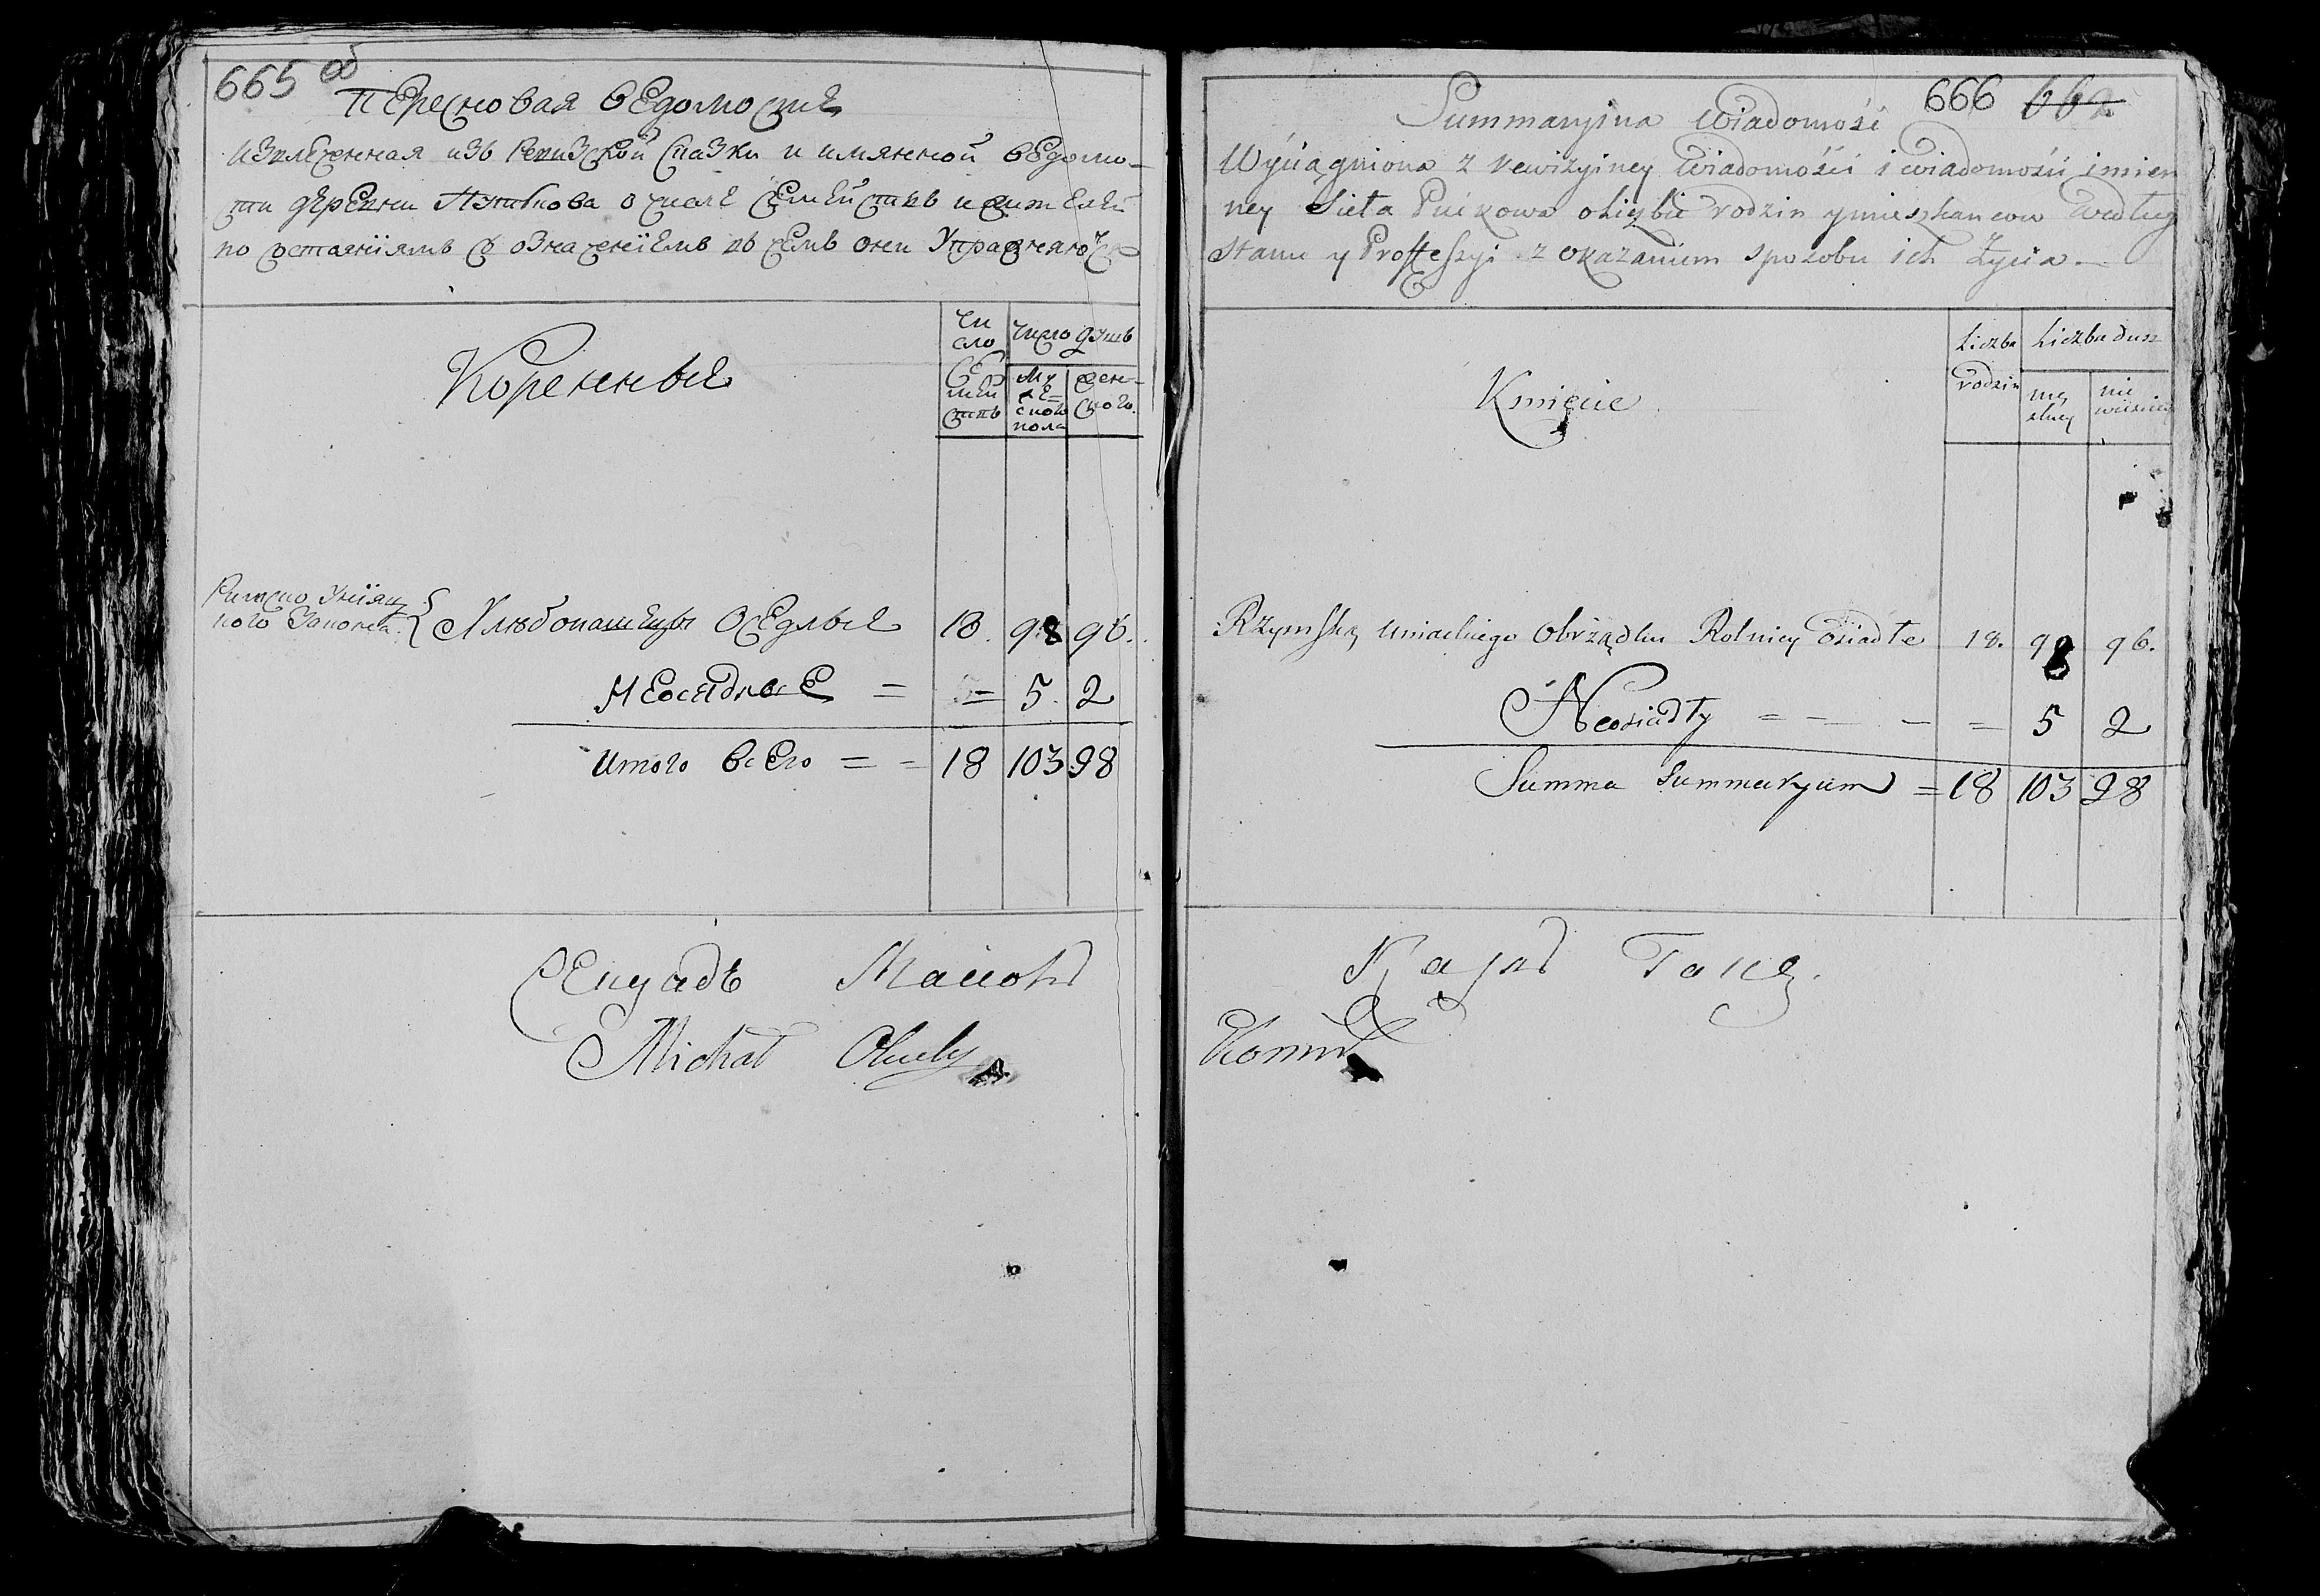 665 об
Перечновая ведомость
извлеченная изъ Ревизской сказки и имянной ведомо-
сти деревни Путькова о числе семействъ и жителей
по состоянiямъ съ означенiемъ въ чемъ они упражняются
Коренные
Чи
сло
се
мей
ствъ
Число душъ
му
же=
ского
пола
жен-
ского.
Римско Унiят
ского Закона.
Хлѣбопашецы Оседлые 18. 98 96.
Неоседлые = = 5. 2
Итого всего = = 18 103 98
Michał
666 662
Summaryina Wiadomość
Wyciągniona z rewizyiney Wiadomości i wiadomości imien
ney Sieła Pućkowa o liczbie rodzin y mieszkancow według
Stanu y Proffessyi z okazaniem sposobu ich Życia
Kmiecie
Liczba
rodzin
Liczba dusz
męs
kiey
nie
wieściey
Rzymsko uniackiego Obrządku Rolnicy Osiadłe 18. 98 96.
Neosiadły = — — = 5 2
Summa Summaryum = 18 103 98